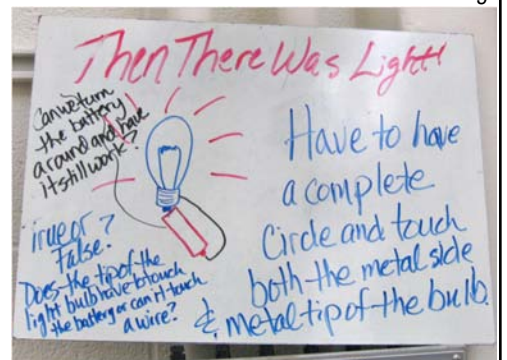 Then There Was Light!
Can we turn
the battery
around and have
it still work?
True or
False?
Does the tip of the
light bulb have to touch
the battery or can it touch
a wire?
Have to have
a complete
Circle and touch
both the metal side
& metal tip of the bulb.